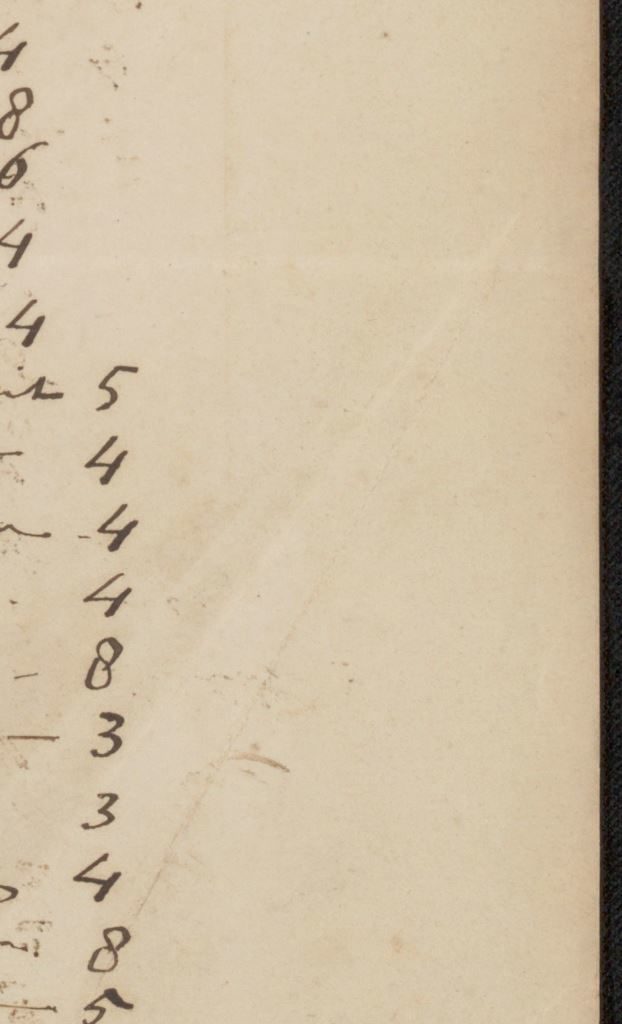 4
8
6
4
4
5
4
4
4
8
3
3
4
8
5